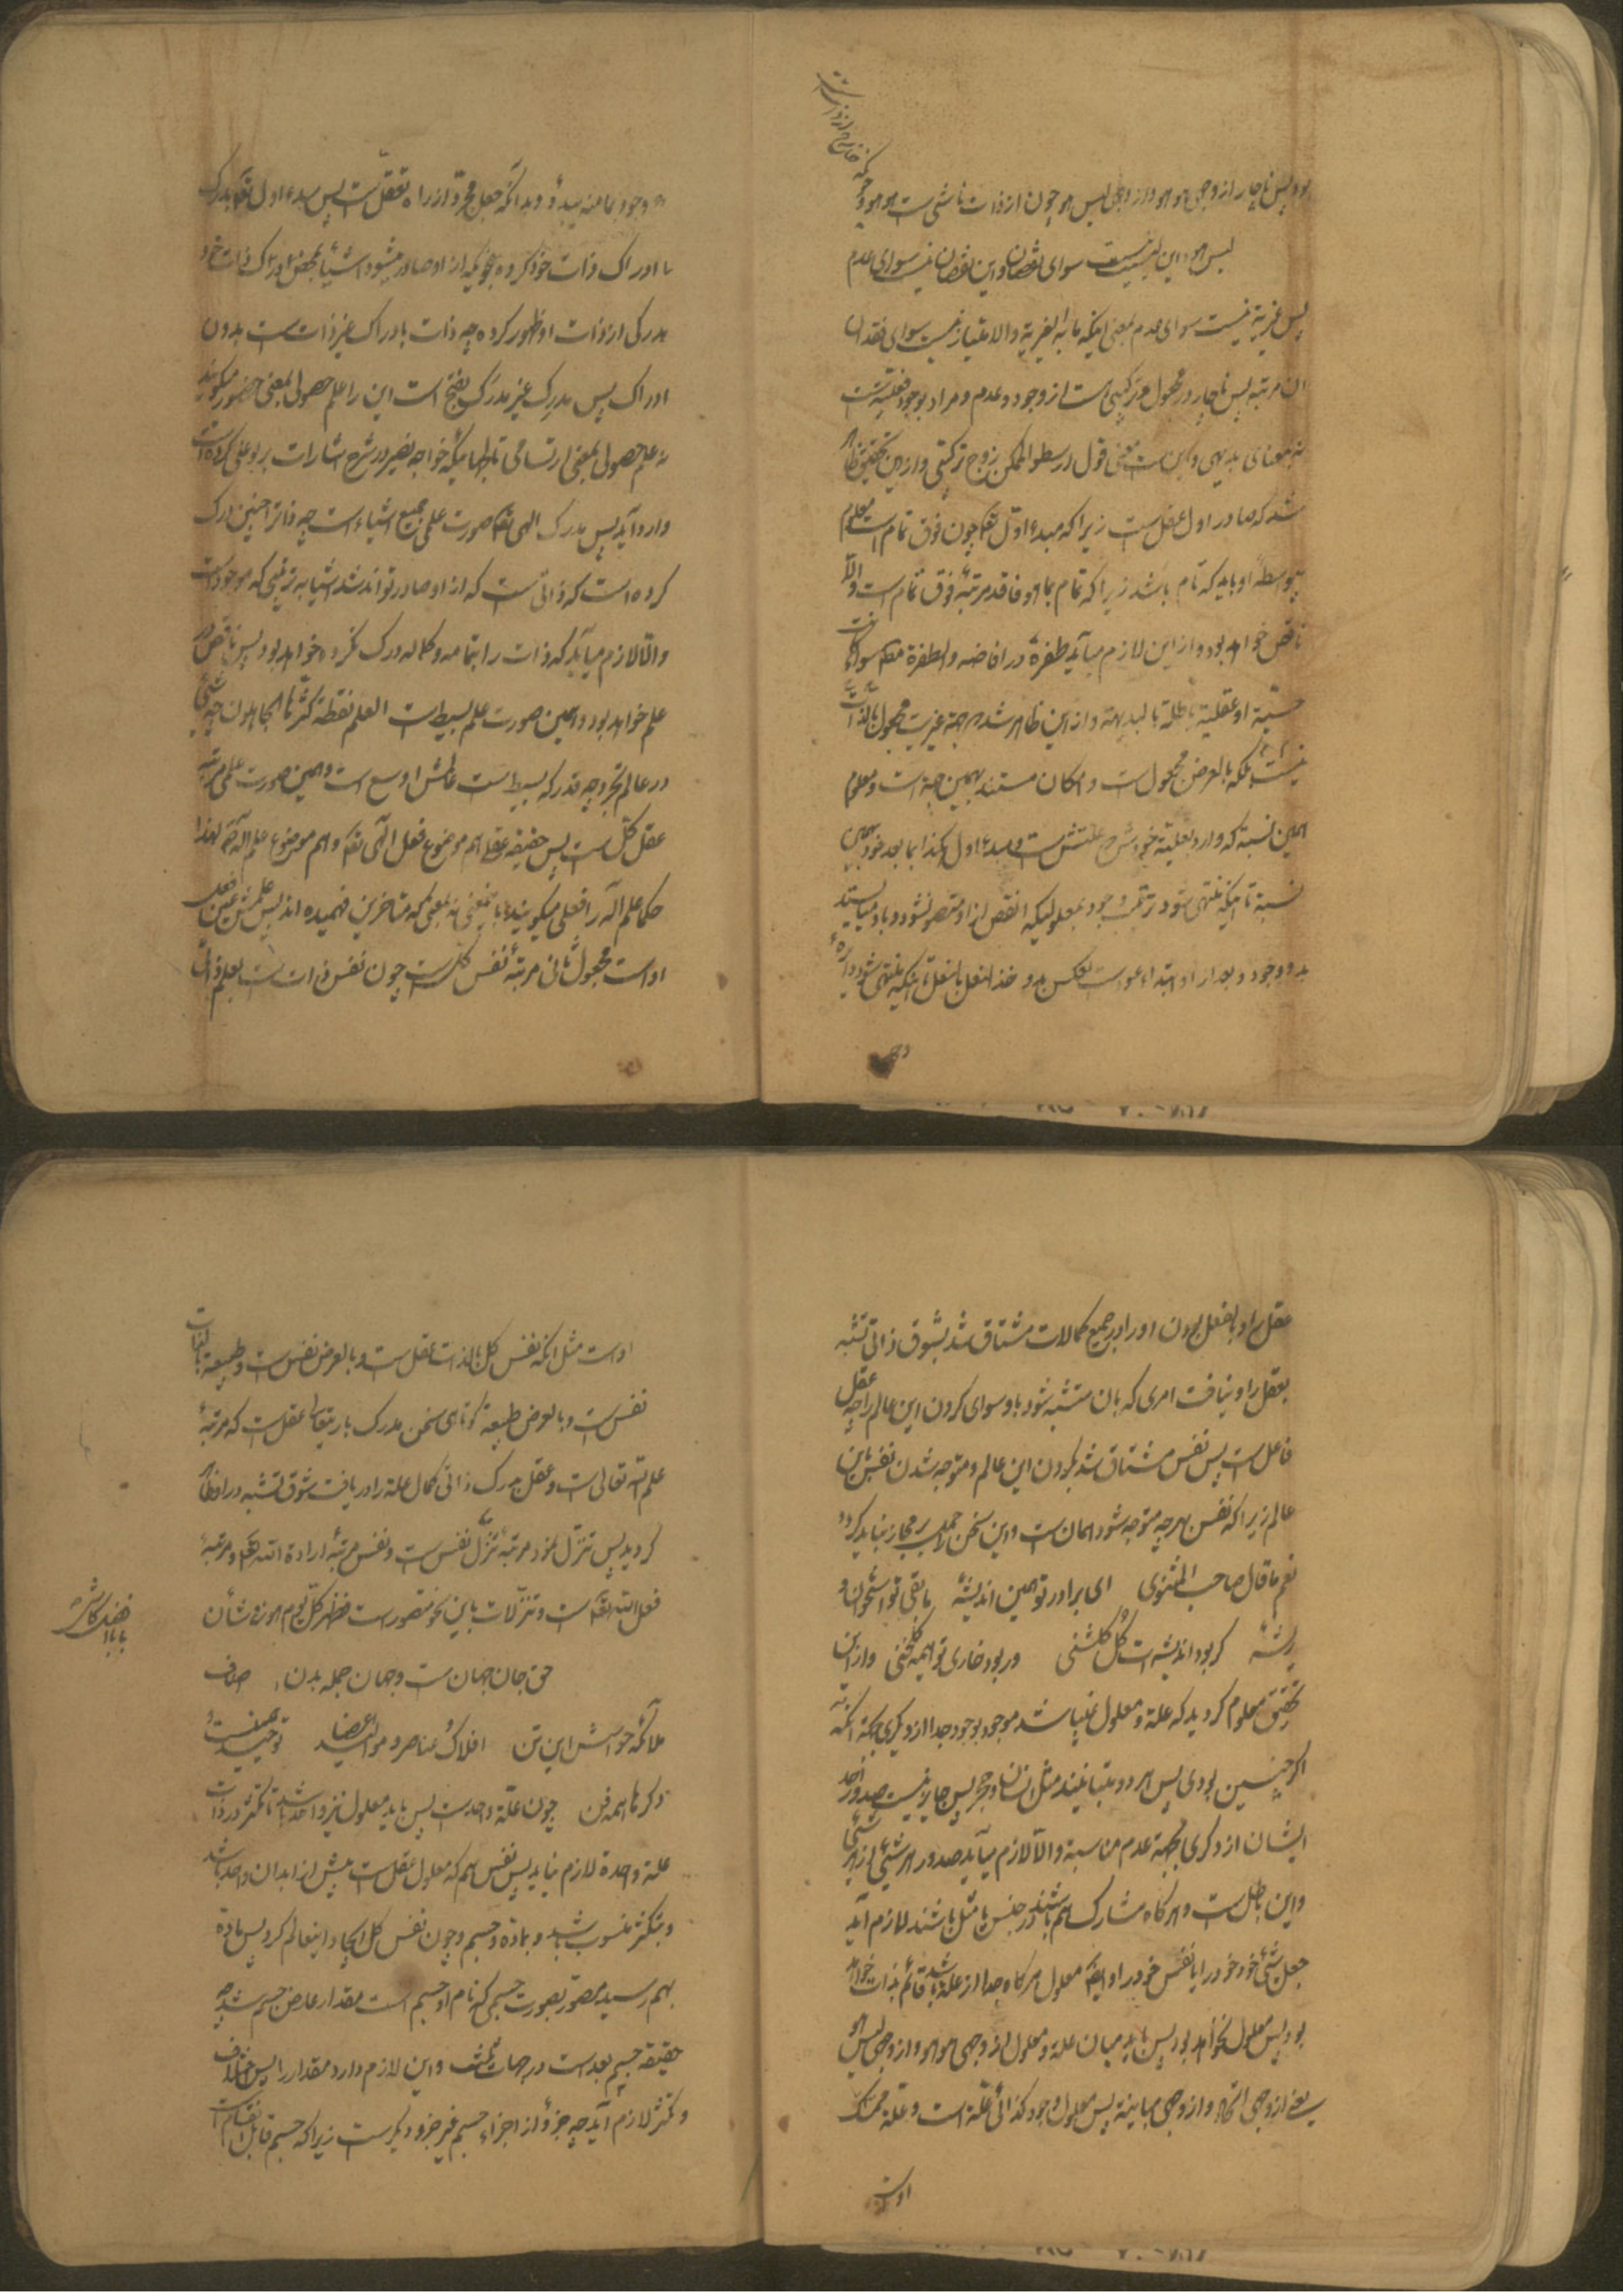 بود پس ناچار از وجهی هو هو و از وجهی لیس هو چون از ذات ناشی ست هو هو وجه
لیس هو و این لیسیت نیست سوای نقصان و این نقصان نیست سوای عدم
پس غیریة نیست سوای عدم بمعنی اینکه ما به الغیریة والامتیاز نیست سوای فقدان
ان مرتبه پس ناچار در مجعول ترکیبی ست از وجود و عدم و مراد بوجود فعلیت ست
نه معنای بدیهی و این ست معنی قول ارسطو الممکن زوج ترکیبی و ازین تحقیق ظاهر
شد که صادر اول عقل ست زیرا که مبدء اول تعالی چون فوق تمام است معلول
بیواسطهٔ او باید که تام باشد زیرا که تمام بما هو فاقد مرتبهٔ فوق تمام ست والا
ناقص خواهد بود و از این لازم میآید طفرهٔ در افاضه و الطفرة سواء کانت
حسّیة او عقلیة باطلة بالبدیهة و از این ظاهر شد جهة غیریت مجعول بالذات
نیست بلکه بالعرض مجعول ست و امکان مستند بهمین جهة است و معلول
همین نسبة که دارد بعلیة خود شرح علتش ست و مبدء اول هکذا بما بعد خود بهمین
نسبة تا اینکه منتهی شود ترتیب وجود بمعلولیکه انقص از او متصور نشود و باو میایستد
بدو وجود و بعد از او ابتداء عود ست بعکس بدو حذو النعل بالنعل تا اینکه منتهی شود دایرهٔ
وجود بما منه بدء و بدانکه جعل مجرد از راه تعقل ست پس مبدء اول تعالی مدرک
با ادراک ذات خود کرده بنحویکه از او صادر میشود اشیا بمحض ادراک ذات خود
مدرکی از ذات او ظهور کرده چه ذات بادراک غیر ذات ست بدون
ادراک پس مدرِک غیر مدرَک بفتح است این را علم حصولی بمعنی حضور میگویند
نه علم حصولی بمعنی ارتسامی تا ایرادهائیکه خواجه نصیر در شرح اشارات بر بوعلی کرده است
وارد آید پس مدرک الهی تعالی صورت علمی جمیع اشیاء است چه ذات را چنین درک
کرده است که ذاتی ست که از او صادر تواند شد اشیا به ترتیبی که موجود است
والا لازم میآید که ذات را بتمامه و کماله درک نکرده خواهد بود پس ناقص در
علم خواهد بود و همین صورت علم بسیط ست العلم نقطة کثّرها الجاهلون چه شیئ
در عالم تجرد چه قدر که بسیط ست عالمش اوسع است و همین صورت علمی مرتبه
عقل کل ست پس حقیقة عقل هم موضوع فعل الهی تعالی و هم موضوع علم اله تعالی لهذا
حکما علم اله را فعلی میگویند باین معنی نه بمعنی که متاخرین فهمیده اند پس علمش عین فعل
او است مجعول ثانی مرتبهٔ نفس کل ست چون نفس ذات ست بعلم ذاتی
وجود
عقل را و بالفعل بودن او را در جمیع کمالات مشتاق شد بشوق ذاتی تشبه
بعقل را و نیافت امری که بان متشبه شود باو سوای کردن این عالم را چه عقل
فاعل ست پس نفس مشتاق شد بکردن این عالم و متوجه شدن نفس باین
عالم زیرا که نفس بهر چه متوجه شود همان ست و این سخن را حمل بر مجاز نباید کرد و
نعم ما قال صاحب المثنوی ای برادر تو همین اندیشهٔ مابقی تو استخوان و
ریشهٔ گر بود اندیشه ات گل گلشنی ور بود خاری تو هیمه گلخنی و از این
تحقیق معلوم گردید که علة و معلول نمیباشد موجود بوجود جدا از دیگری بجهة انکه
اگر چنین بودی پس هر دو متباینند مثل انسان و حجر پس جایز نیست صدور احد
ایشان از دگری بجهة عدم مناسبة والا لازم میآید صدور هر شیئ از هر شیئ
و این باطل ست و هر گاه مشارک هم باشند در جنس یا مثل باشند لازم آید
جعل شیئ خود خود را یا نفس خود را و ایضا معلول هر گاه جدا از علة باشد قائم بذات خواهد
بود پس معلول نخواهد بود پس باید میان علة و معلول از وجهی هو هو و از وجهی لیس هو
یعنی از وجهی اتحاد و از وجهی مباینة پس معلول وجود کذائی علّة است و علّة محرک
اوست
اوست مثل انکه نفس کل بالذات عقل ست و بالعرض نفس ست و طبیعة بالذات
نفس ست و بالعرض طبیعة کوتاهی سخن مدرک باریتعالی عقل ست که مرتبهٔ
علم تعالی است و عقل مدرک ذاتی کمال علة را دریافت شوق تشبه در او ظاهر
گردید پس تنزل نمود مرتبهٔ تنزّل نفس ست و نفس مرتبهٔ ارادة الله تعالی و مرتبهٔ
فعل الله تعالی است و تنزّلات باین نحو متصور ست فظهر کل یوم هو فی شأن
حق جان جهان ست و جهان جمله بدن اصناف
ملائکه حواس این تن افلاک و عناصر و موالید اعضا توحید همین است
دگرها همه فن چون علّة واحد ست پس باید معلول نیز واحد باشد تا تکثر در ذات
علة واحدة لازم نیاید پس نفس هم که معلول عقل ست پیش از ابدان واحد باشد
و بتکثر منسوب باشد و بماده و جسم و چون نفس کل ایجاد اینعالم کرد پس ماده
بهم رسید مصور بصورت جسمی که نام او جسم است مقدار عارض جسم شد چه
حقیقة جسم بعد ست در جهات ثلث و این لازم دارد مقدار را پس اختلاف
و تکثر لازم آید چه جزؤ از اجزاء جسم غیر جزو دیگر ست زیرا که جسم قابل انقسام است